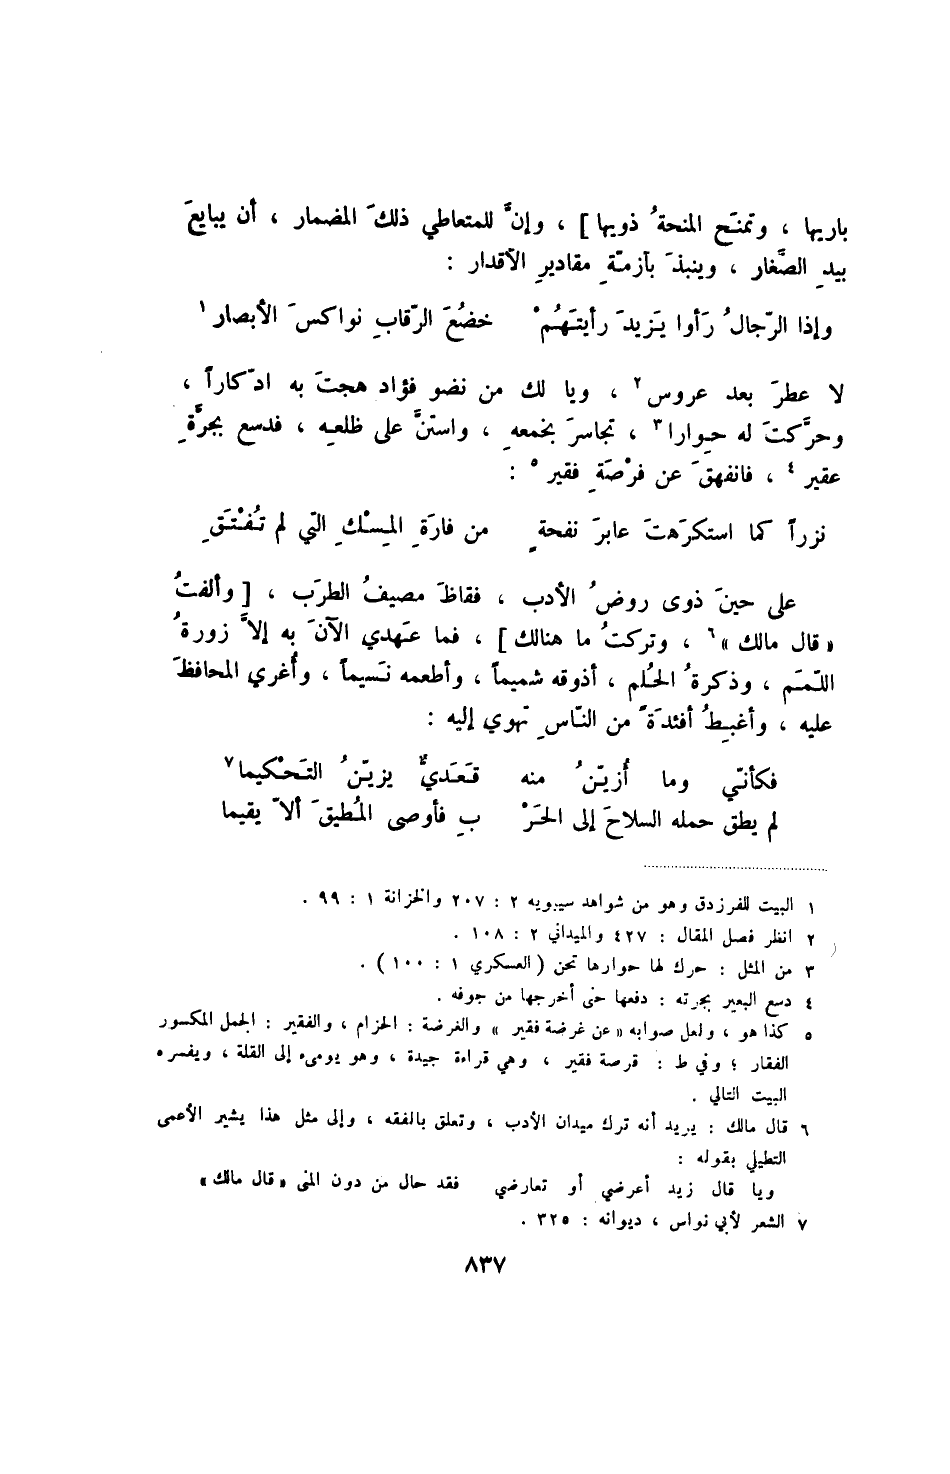 باريها ، وتمنَح المنحةُ ذويها ] ، وإنَّ للمتعاطي ذلكَ المضمار ، أن يبايعَ
بيدِ الصَّغار ، وينبذَ بآزمّةِ مقاديرِ الأقدار :
وإذا الرّجالُ رَأوا يَزيدَ رأيتَهُمْ خضُعَ الرّقابِ نواكسَ الأبصار ١
لا عطرَ بعد عروس ٢ ، ويا لك من نضو فؤاد هجتَ به ادّكاراً ،
وحرَّكتَ له حِوارا ٣ ، تجاسرَ بخمعهِ ، واستنَّ على ظلعهِ ، فدسع بجرَّةِ
عقير ٤ ، فانفهقَ عن فرْصَةِ فقير ٥ :
نزراً كما استكرَهتَ عابرَ نفحةٍ من فارَةِ المِسْكِ التّي لم تُفْتَقِ
على حينَ ذوى روضُ الأدب ، فقاظَ مصيفُ الطرَب ، [ وألفتُ
« قال مالك » ٦ ، وتركتُ ما هنالك ] ، فما عَهدي الآنَ به إلاَّ زورةُ
اللّمَم ، وذكرةُ الحُلم ، أذوقه شميماً ، وأطعمه نَسيماً ، وأُغري المحافظَ
عليه ، وأغبِطُ أفئدَةً من النّاسِ تهوي إليه :
فكأنّي وما أُزيّنُ منه قَعَديٌّ يزيّنُ التَحْكيما ٧
لم يطق حمله السلاحَ إلى الحَرْ بِ فأوصى المُطيقَ ألاّ يقيما
١ البيت للفرزدق وهو من شواهد سيبويه ٢ : ٢٠٧ والخزانة ١ : ٩٩ .
٢ انظر فصل المقال : ٤٢٧ والميداني ٢ : ١٠٨ .
٣ من المثل : حرك لها حوارها تحن ( العسكري ١ : ١٠٠ ) .
٤ دسع البعير بجرته : دفعها حتى أخرجها من جوفه .
٥ كذا هو ، ولعل صوابه « عن غرضة فقير » والغرضة : الحزام ، والفقير : الجمل المكسور
الفقار ؛ وفي ط : قرصة فقير ، وهي قراءة جيدة ، وهو يومىء إلى القلة ، ويفسره
البيت التالي .
٦ قال مالك : يريد أنه ترك ميدان الأدب ، وتعلق بالفقه ، وإلى مثل هذا يشير الأعمى
التطيلي بقوله :
ويا قال زيد أعرضي أو تعارضي فقد حال من دون المنى « قال مالك »
٧ الشعر لأبي نواس ، ديوانه : ٣٢٥ .
٨٣٧